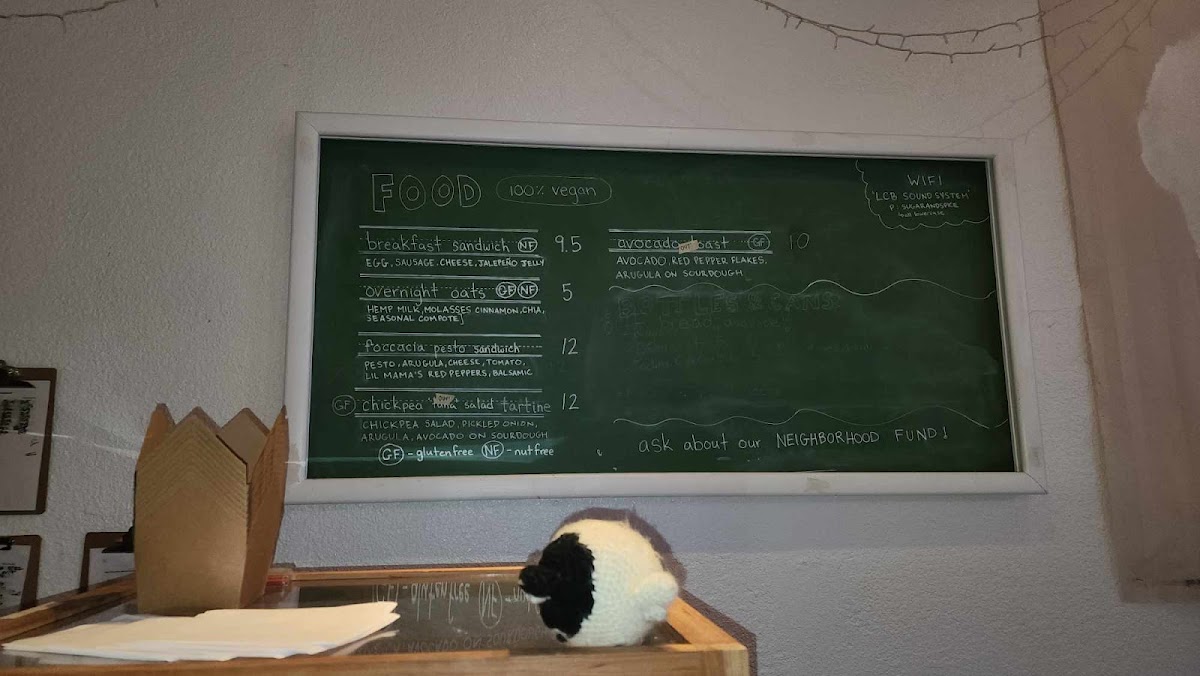 FOOD 100% vegan
breakfast sandwich NF 9.5
EGG, SAUSAGE, CHEESE, JALEPEÑO JELLY
overnight oats GF NF 5
HEMP MILK, MOLASSES CINNAMON, CHIA,
SEASONAL COMPOTE]
foccacia pesto sandwich 12
PESTO, ARUGULA, CHEESE, TOMATO,
LIL MAMA'S RED PEPPERS, BALSAMIC
GF chickpea "tuna salad tartine 12
OUT
CHICKPEA SALAD, PICKLED ONION,
ARUGULA, AVOCADO ON SOURDOUGH
GF - gluten free NF - nut free
avocado toast GF 10
OUT
AVOCADO, RED PEPPER FLAKES,
ARUGULA ON SOURDOUGH
ask about our NEIGHBORHOOD FUND!
WIFI
"LCB SOUNDSYSTEM"
P: SUGARANDSPICE